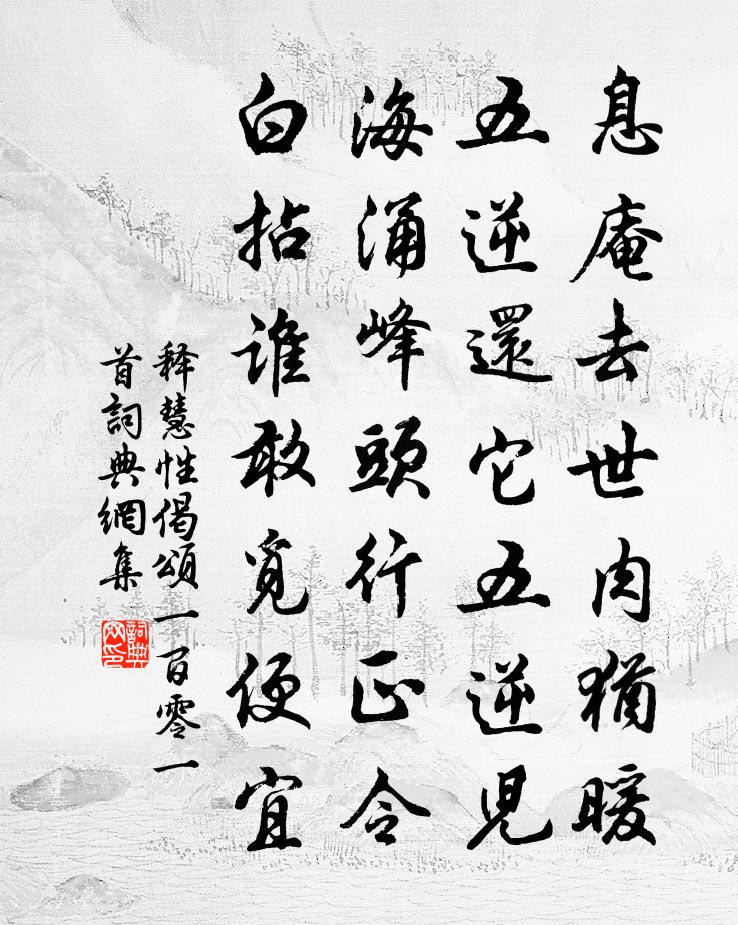 息庵去世肉猶暖
五逆還它五逆児
海涌峰頭行正令
白拈誰敢覓便宜
释慧性偈頌一百零一
首詞典網集
詞典网印